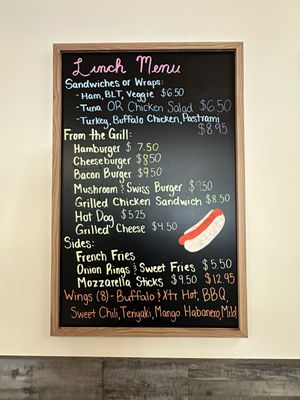 Lunch Menu
Sandwiches or Wraps:
- Ham, BLT, Veggie $6.50
- Tuna OR Chicken Salad $6.50
- Turkey, Buffalo Chicken, Pastrami
$8.95
From the Grill:
Hamburger $7.50
Cheeseburger $8.50
Bacon Burger $9.50
Mushroom & Swiss Burger $9.50
Grilled Chicken Sandwich $8.50
Hot Dog $5.25
Grilled Cheese $4.50
Sides:
French Fries
Onion Rings & Sweet Fries $5.50
Mozzarella Sticks $9.50 $12.95
Wings (8) - Buffalo & Xtr Hot, BBQ,
Sweet Chili, Teriyaki, Mango Habanero, Mild